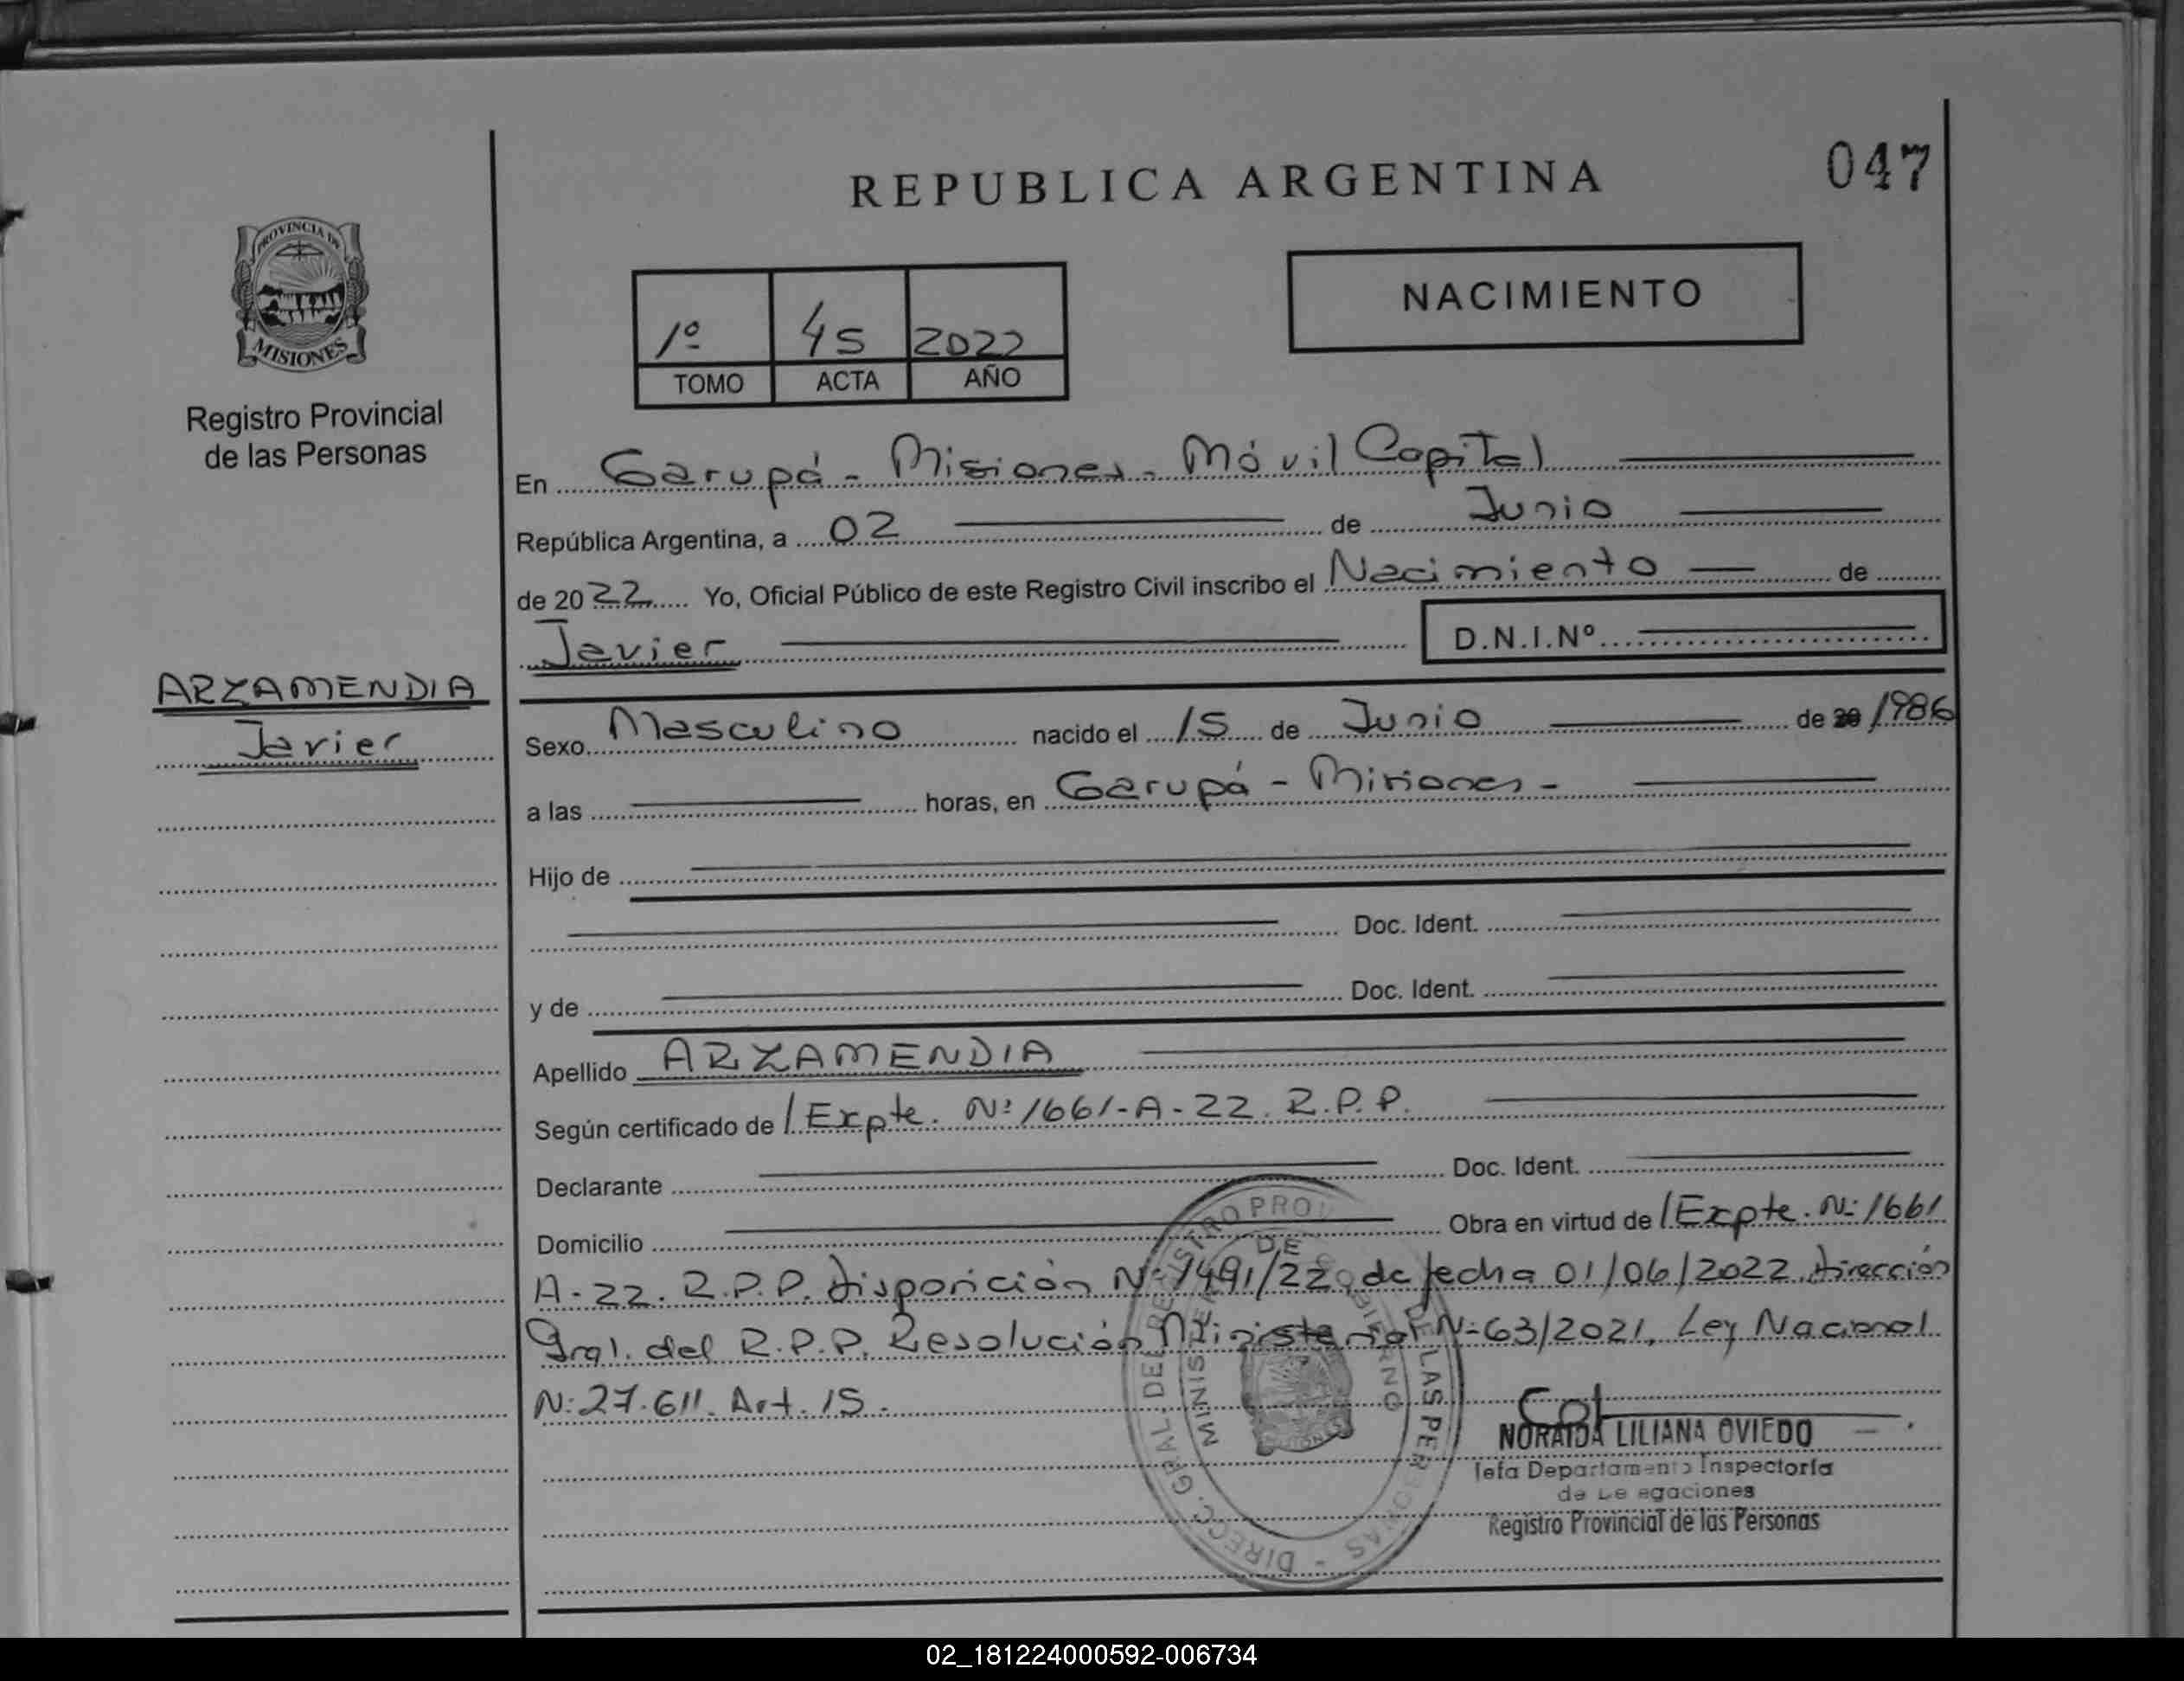 REPUBLICA ARGENTINA
047
PROVINCIA DE
MISIONES
Registro Provincial
de las Personas
1º 45 2022
TOMO ACTA AÑO
NACIMIENTO
En Garupá - Misiones - Móvil Capital
República Argentina, a 02 de Junio
de 2022 Yo, Oficial Público de este Registro Civil inscribo el Nacimiento de
Javier D.N.I.Nº
ARZAMENDIA
Javier
Sexo Masculino nacido el 15 de Junio de 20 1986
a las horas, en Garupá - Misiones -
Hijo de
Doc. Ident.
y de Doc. Ident.
Apellido ARZAMENDIA
Según certificado de /Expte. Nº 1661-A-22. R.P.P.
Declarante Doc. Ident.
Domicilio Obra en virtud de /Expte. Nº 1661
A-22. R.P.P. Disposición Nº 1491/22, de fecha 01/06/2022, Dirección
Gral. del R.P.P. Resolución Ministerial Nº 63/2021, Ley Nacional
Nº 27.611. Art. 15.
DIRECC. GRAL. DEL REGISTRO PROV. DE LAS PERSONAS -
NORAIDA LILIANA OVIEDO
Jefa Departamento Inspectoría
de Delegaciones
Registro Provincial de las Personas
02_181224000592-006734